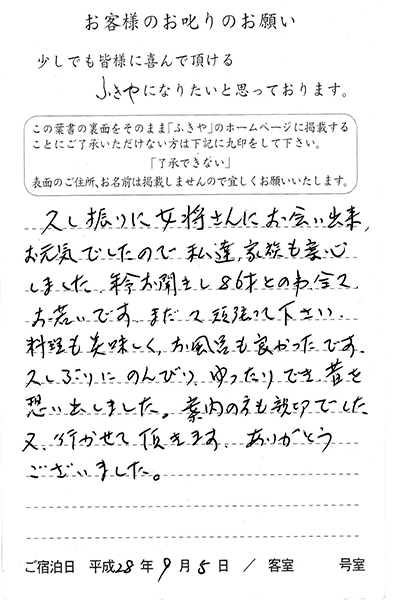 お客様のお叱りのお願い
少しでも皆様に喜んで頂ける
ふきやになりたいと思っております。
この葉書の裏面をそのまま「ふきや」のホームページに掲載する
ことにご了承いただけない方は下記に丸印をして下さい。
「了承できない」
表面のご住所、お名前は掲載しませんので宜しくお願いいたします。
久し振りに女将さんにお会い出来、
お元気でしたので私達、家族も安心
しました。年令お聞きし86才との事、全て
お若いです。まだ々頑張って下さい。
料理も美味しく、お風呂も良かったです。
久しぶりにのんびり、ゆったりでき、昔を
思い出しました。案内の方も親切でした
又、行かせて頂きます。ありがとう
ございました。
ご宿泊日 平成28年9月5日 / 客室 号室